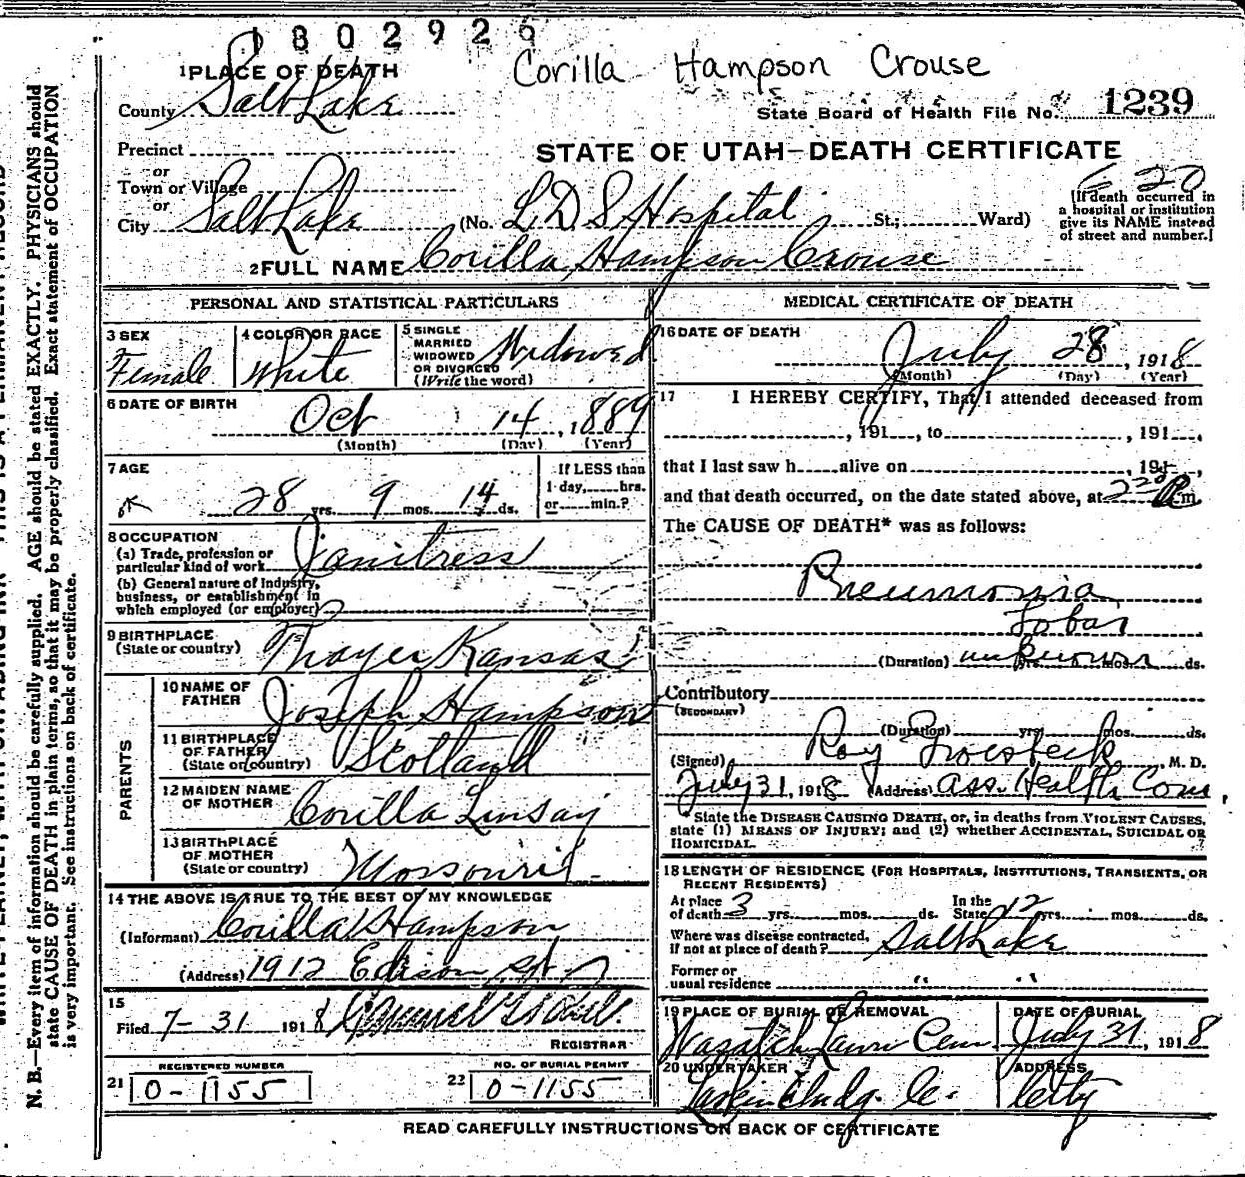 1802926
Corilla Hampson Crouse
1 PLACE OF DEATH
County Salt Lake
State Board of Health File No. 1239
Precinct
STATE OF UTAH—DEATH CERTIFICATE
or
Town or Village
or
City Salt Lake (No. L D S Hospital St.; Ward)
620
[If death occurred in
a hospital or institution
give its NAME instead
of street and number.]
2 FULL NAME Corilla Hampson Crouse
PERSONAL AND STATISTICAL PARTICULARS
3 SEX
Female
4 COLOR OR RACE
White
5 SINGLE
MARRIED
WIDOWED
OR DIVORCED
(Write the word)
Widowed
6 DATE OF BIRTH
Oct 14, 1889
(Month) (Day) (Year)
7 AGE
28 yrs. 9 mos. 14 ds.
If LESS than
1 day, hrs.
or min.?
8 OCCUPATION
(a) Trade, profession or
particular kind of work Janitress
(b) General nature of industry,
business, or establishment in
which employed (or employer)
9 BIRTHPLACE
(State or country) Thayer Kansas
PARENTS
10 NAME OF
FATHER Joseph Hampson
11 BIRTHPLACE
OF FATHER
(State or country) Scotland
12 MAIDEN NAME
OF MOTHER Corilla Linsay
13 BIRTHPLACE
OF MOTHER
(State or country) Mossouri
14 THE ABOVE IS TRUE TO THE BEST OF MY KNOWLEDGE
(Informant) Corilla Hampson
(Address) 1912 Edison St
15
Filed 7-31 1918
REGISTRAR
REGISTERED NUMBER
21 0-1155
NO. OF BURIAL PERMIT
22 0-1155
MEDICAL CERTIFICATE OF DEATH
16 DATE OF DEATH
July 28, 1918
(Month) (Day) (Year)
17 I HEREBY CERTIFY, That I attended deceased from
, 191 , to , 191
that I last saw h alive on , 191 ,
and that death occurred, on the date stated above, at 2 20 P m.
The CAUSE OF DEATH* was as follows:
Pneumonia
Lobar
(Duration) unknown yrs. mos. ds.
Contributory
(SECONDARY)
(Duration) yrs. mos. ds.
(Signed) Roy Groesbeck M. D.
July 31, 1918 (Address) Ass. Health Com.
*State the DISEASE CAUSING DEATH, or, in deaths from VIOLENT CAUSES,
state (1) MEANS OF INJURY; and (2) whether ACCIDENTAL, SUICIDAL OR
HOMICIDAL.
18 LENGTH OF RESIDENCE (FOR HOSPITALS, INSTITUTIONS, TRANSIENTS, OR
RECENT RESIDENTS)
At place
of death 3 yrs. mos. ds.
In the
State 12 yrs. mos. ds.
Where was disease contracted,
if not at place of death? Salt Lake
Former or
usual residence " "
19 PLACE OF BURIAL OR REMOVAL
Wasatch Lawn Cem
DATE OF BURIAL
July 31, 1918
20 UNDERTAKER
ADDRESS
City
READ CAREFULLY INSTRUCTIONS ON BACK OF CERTIFICATE
N. B.—Every item of information should be carefully supplied. AGE should be stated EXACTLY. PHYSICIANS should
state CAUSE OF DEATH in plain terms, so that it may be properly classified. Exact statement of OCCUPATION
is very important. See instructions on back of certificate.